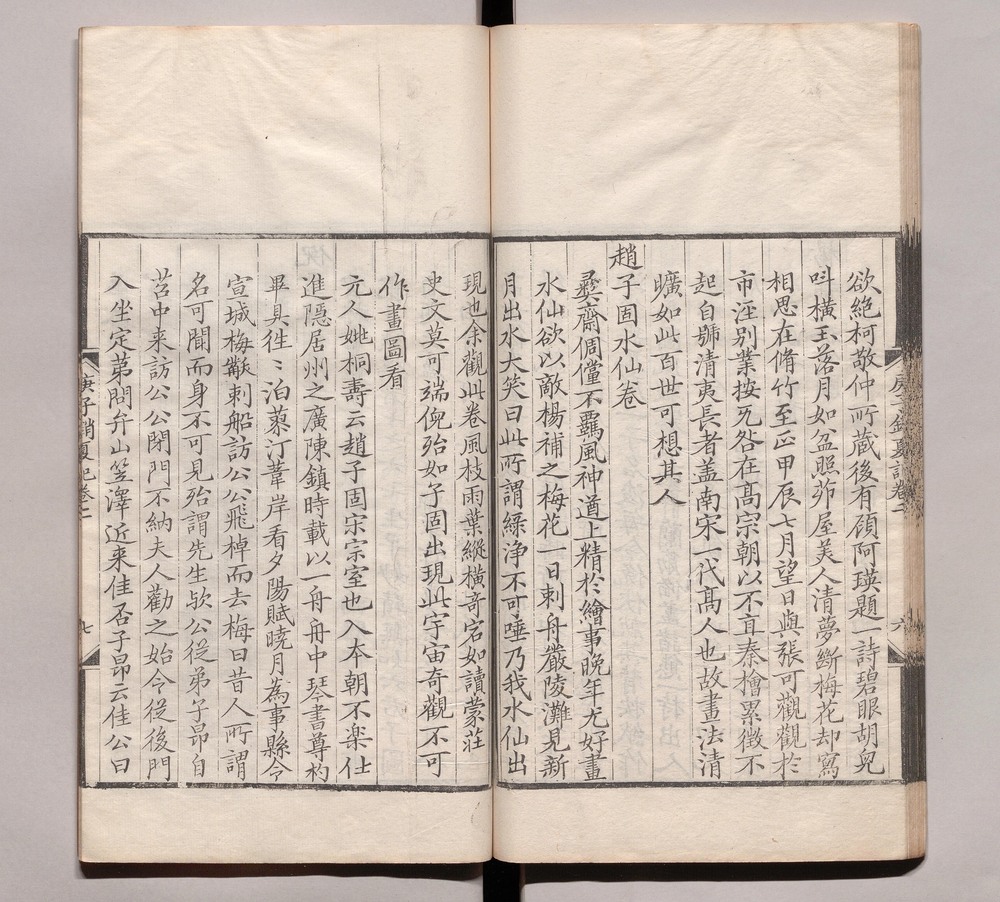 欲絶柯敬仲所蔵後有顧阿瑛題詩碧眼胡兒
叫橫玉落月如盆照茆屋美人清夢斷梅花却寫
相思在脩竹至正甲辰七月望日與張可觀觀於
市涇別業按旡咎在髙宗朝以不直秦檜累徵不
起自號清夷長者盖南宋一代髙人也故畫法清
曠如此百世可想其人
趙子固水仙卷
彛齋倜儻不羈風神遒上精於繪事晚年尤好畫
水仙欲以敵楊補之梅花一日刺舟嚴陵灘見新
月出水大笑曰此所謂綠净不可唾乃我水仙出
現也余觀此卷風枝雨葉縱橫奇宕如讀蒙莊
史文莫可端倪殆如子固出現此宇宙奇觀不可
作畫圖看
元人姚桐壽云趙子固宋宗室也入本朝不楽仕
進隱居州之廣陳鎮時載以一舟舟中琴書尊杓
畢具徃〻泊蓼汀葦岸看夕陽賦曉月為事縣令
宣城梅黻刺船訪公公飛棹而去梅曰昔人所謂
名可聞而身不可見殆謂先生欤公従弟子昂自
苕中来訪公公閉門不納夫人勸之始令従後門
入坐定第問弁山笠澤近来佳否子昂云佳公曰
庚子銷夏記卷二
六
庚子銷夏記卷二
七